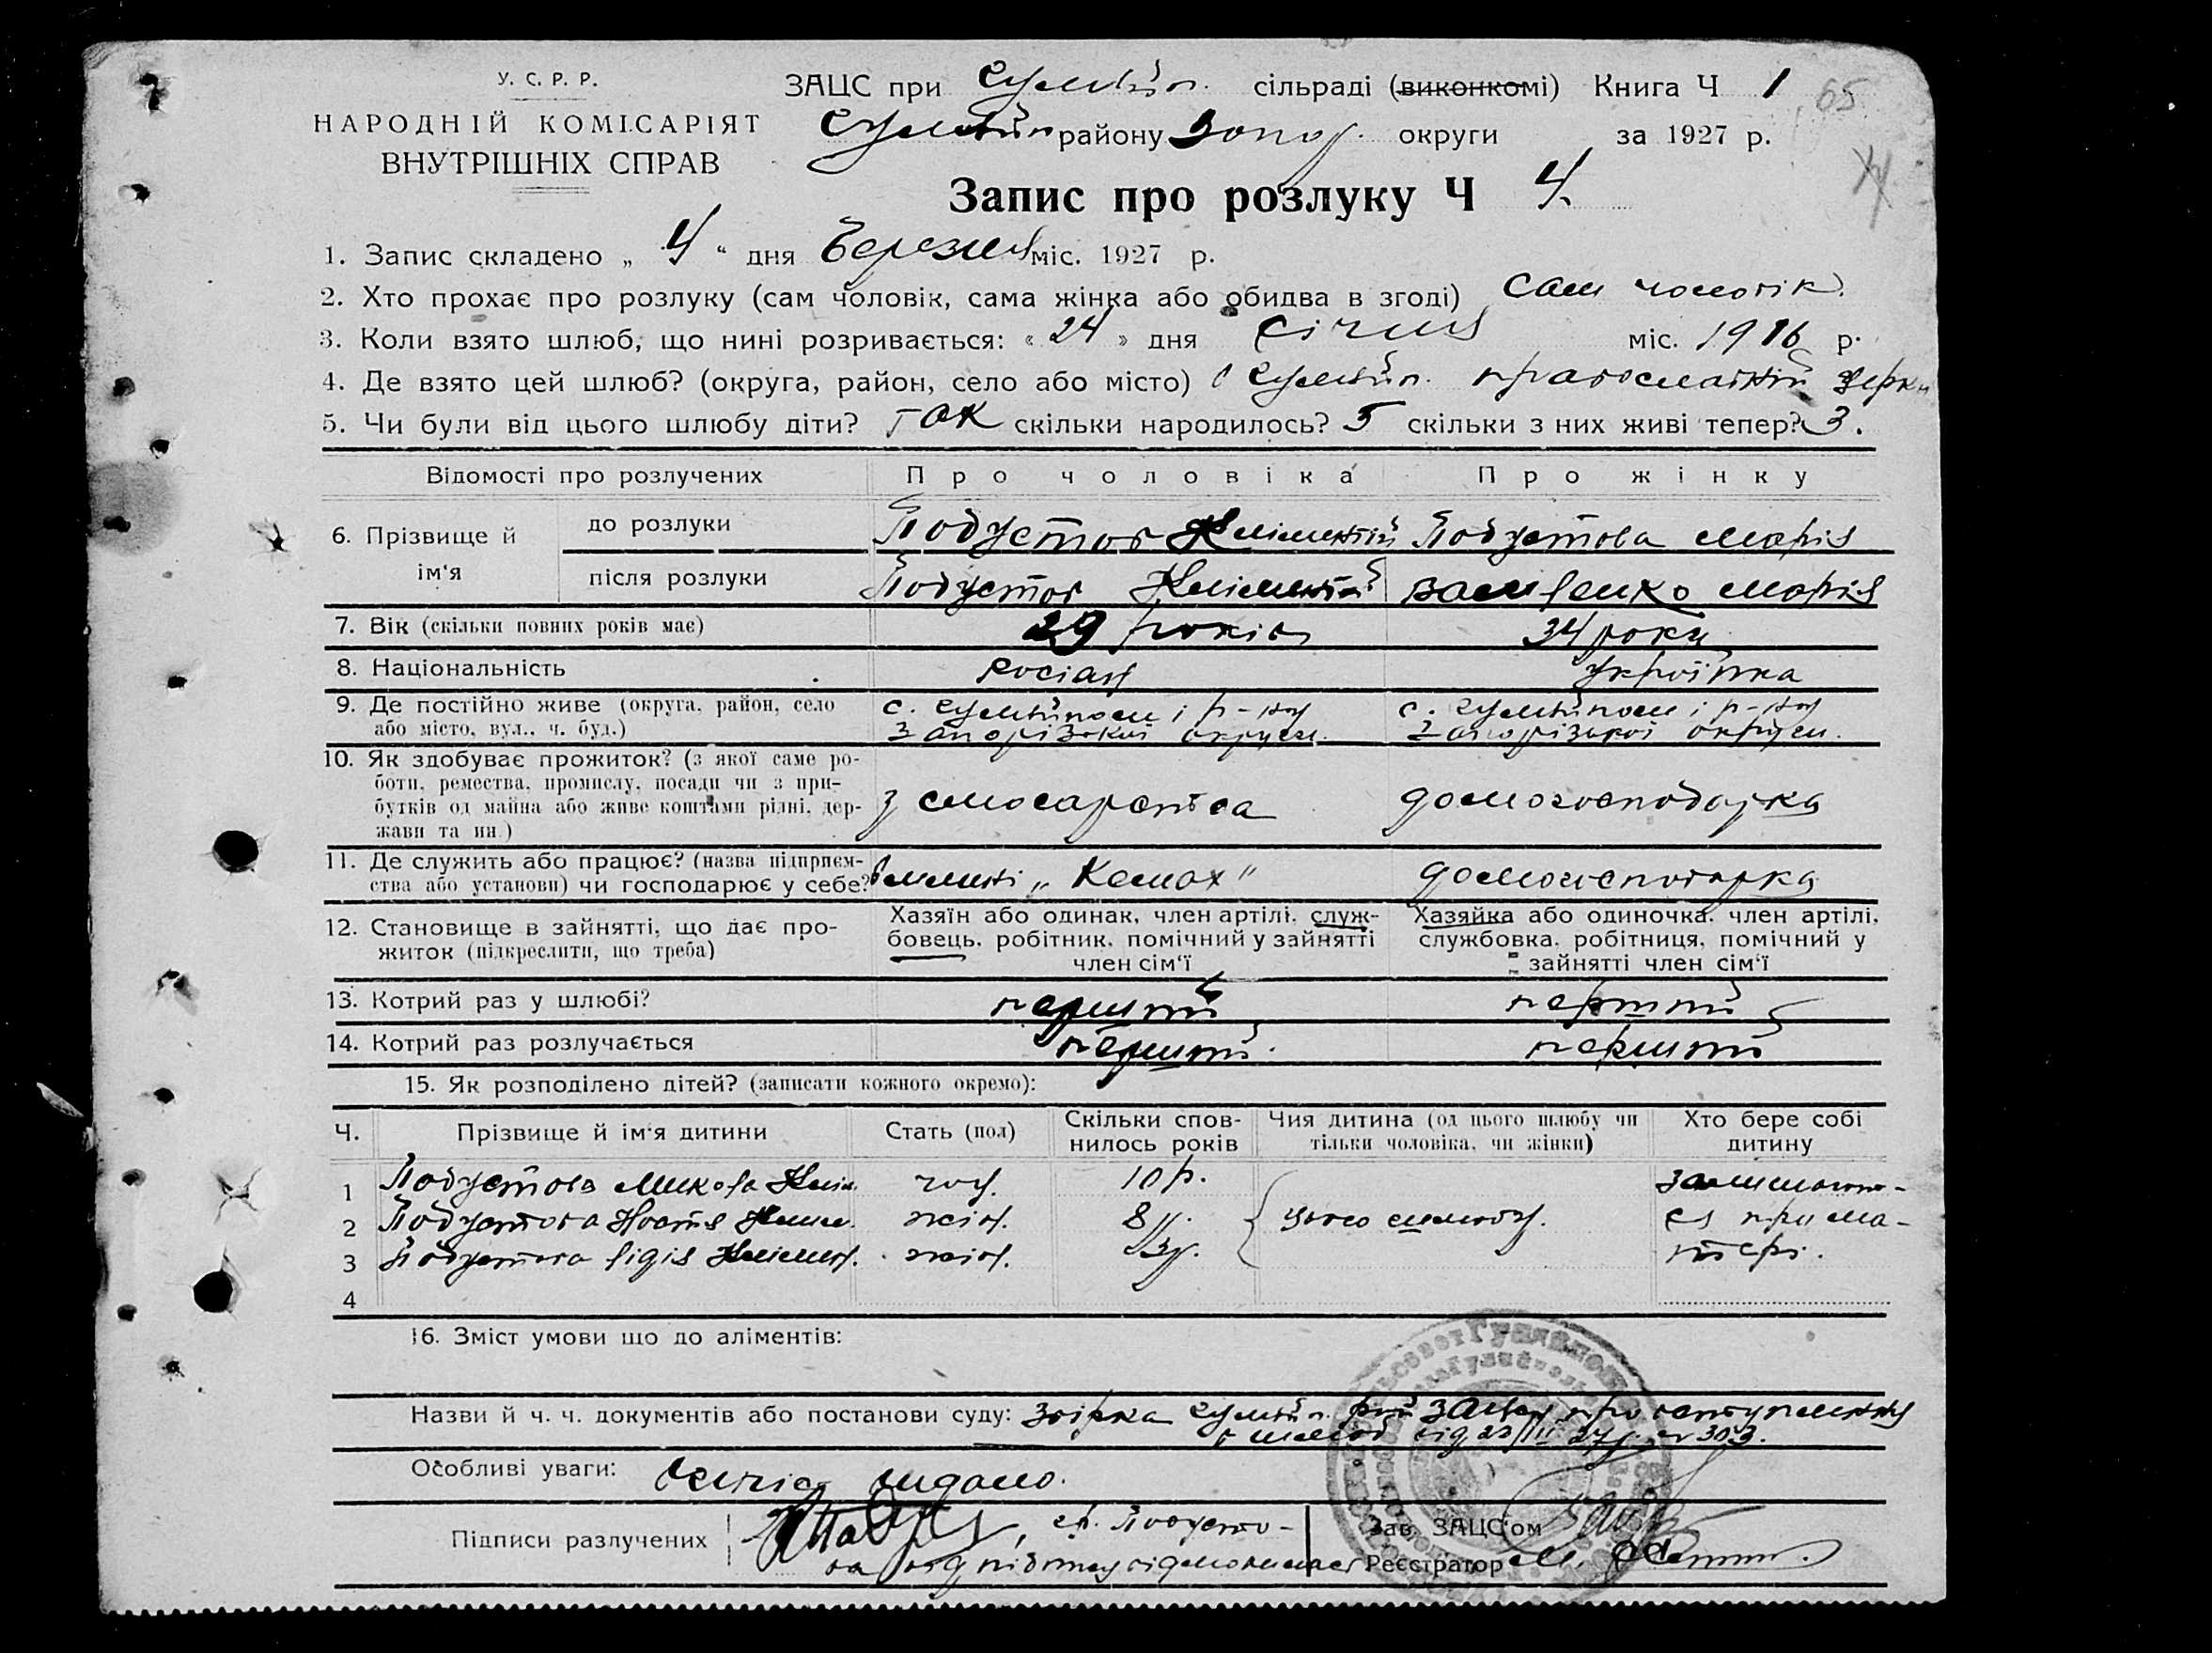 У. С. Р. Р.
НАРОДНІЙ КОМІСАРІЯТ
ВНУТРІШНІХ СПРАВ
ЗАЦС при Гуляйп. сільраді (виконкомі) Книга Ч 1
65
Гуляйп району Запор. округи за 1927 р.
Запис про розлуку Ч 4.
1. Запис складено „ 4 “ дня Березня міс. 1927 р.
2. Хто прохає про розлуку (сам чоловік, сама жінка або обидва в згоді) сам чоловік.
3. Коли взято шлюб, що нині розривається: « 24 » дня січня міс. 1916 р.
4. Де взято цей шлюб? (округа, район, село або місто) в Гуляйп. православній церкві
5. Чи були від цього шлюбу діти? так скільки народилось? 5 скільки з них живі тепер? 3.
Відомості про розлучених Про чоловіка Про жінку
6. Прізвище й ім‘я
до розлуки Подустов Кліментій Подустова Марія
після розлуки Подустов Кліментій Марія
7. Вік (скільки повних років має) 29 років 34 роки
8. Національність росіян Українка
9. Де постійно живе (округа, район, село або місто, вул., ч. буд.)
с. Гуляйполе і р-ну Запорізької округи.
с. Гуляйполе і р-ну Запорізької округи.
10. Як здобуває прожиток? (з якої саме роботи, ремества, промислу, посади чи з прибутків од майна або живе коштами рідні, держави та ин.)
з слюсарства домогосподарка
11. Де служить або працює? (назва підприємства або установи) чи господарює у себе?
в млині домогосподарка
12. Становище в зайнятті, що дає прожиток (підкреслити, що треба)
Хазяїн або одинак, член артілі, службовець, робітник, помічний у зайнятті член сім‘ї
Хазяйка або одиночка, член артілі, службовка, робітниця, помічний у зайнятті член сім‘ї
13. Котрий раз у шлюбі? перший перший
14. Котрий раз розлучається перший перший
15. Як розподілено дітей? (записати кожного окремо):
Ч. Прізвище й ім‘я дитини Стать (пол) Скільки сповнилось років Чия дитина (од цього шлюбу чи тільки чоловіка, чи жінки) Хто бере собі дитину
1 Подустов Микола Клім. чол. 10 р.
2 Подустова Настя Клим. жін. 8 р. цього шлюбу.
3 Подустова Лідія Клімент. жін. 3 р.
залишаються при матері.
4
16. Зміст умови що до аліментів:
Назви й ч. ч. документів або постанови суду: Гуляйп. про вступлення
в шлюб від 23/III 27 р. 303.
Особливі уваги: видано.
Підписи разлучених гр. Подустова від підпису відмовилась
Зав. ЗАЦС‘ом
Реєстратор